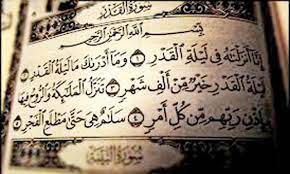 سُورَةُ الْقَدْرِ
بِسْمِ اللَّهِ الرَّحْمَٰنِ الرَّحِيمِ
إِنَّا أَنزَلْنَٰهُ فِى لَيْلَةِ الْقَدْرِ ۝١ وَمَا أَدْرَىٰكَ مَا لَيْلَةُ الْقَدْرِ ۝٢
لَيْلَةُ الْقَدْرِ خَيْرٌ مِّنْ أَلْفِ شَهْرٍ ۝٣ تَنَزَّلُ الْمَلَٰٓئِكَةُ وَالرُّوحُ فِيهَا
بِإِذْنِ رَبِّهِم مِّن كُلِّ أَمْرٍ ۝٤ سَلَٰمٌ هِىَ حَتَّىٰ مَطْلَعِ الْفَجْرِ ۝٥
سُورَةُ الْبَيِّنَةِ